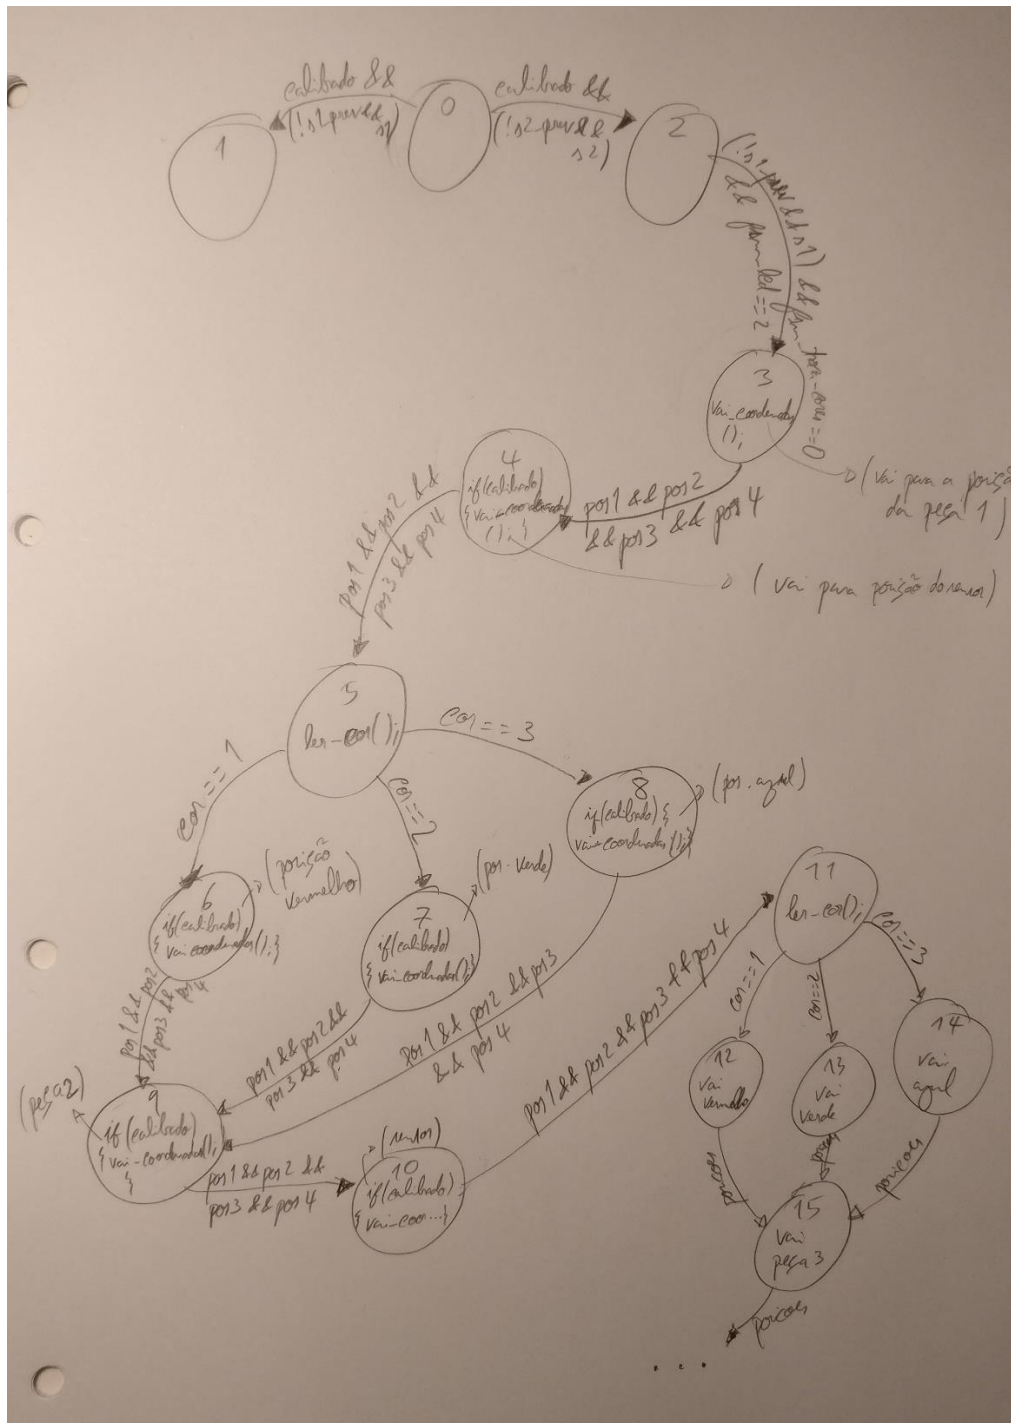 calibado &&
(!s2_prev &&
s2)
1
0
calibado &&
(!s2_prev &&
s2)
2
(!s2_prev && s1) && fsm_
&& fsm_led==2
3
vai_coordenadas
();
(vai para a posiçã
da peça 1)
pos1 && pos2
&& pos3 && pos4
4
if(calibado)
{vai_coordenadas
();}
(vai para posição do sensor)
pos1 && pos2 &&
pos3 && pos4
5
ler_cor();
cor==1
cor==2
cor==3
6
if(calibado)
{vai_coordenadas();}
(posição
vermelho)
7
if(calibado)
{vai_coordenadas();}
(pos. verde)
8
if(calibado){
vai_coordenadas();}
(pos. azul)
pos1 && pos2
&& pos3 &&
pos4
pos1 && pos2 &&
pos3 && pos4
pos1 && pos2 && pos3
&& pos4
(peça2)
9
if(calibado)
{vai_coordenadas();
}
pos1 && pos2 &&
pos3 && pos4
(sensor)
10
if(calibado)
{vai_coor...}
pos1 && pos2 && pos3 && pos4
11
ler_cor();
cor==1
cor==2
cor==3
12
vai
vermelho
13
vai
verde
14
vai
azul
posicoes
posicoes
15
vai
peça 3
posicoes
...